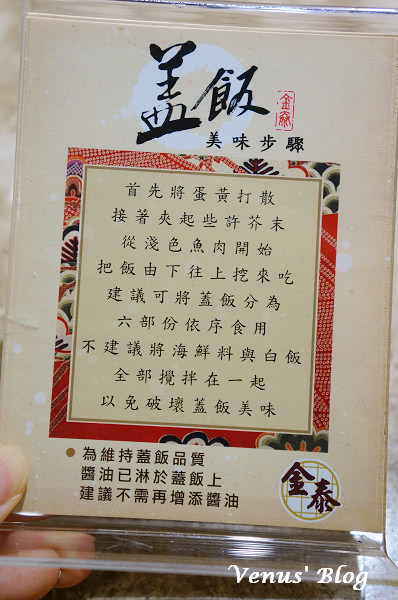 盖飯
金泰
美味步驟
首先將蛋黃打散
接著夾起些許芥末
從淺色魚肉開始
把飯由下往上挖來吃
建議可將蓋飯分為
六部份依序食用
不建議將海鮮料與白飯
全部攪拌在一起
以免破壞蓋飯美味
為維持蓋飯品質
醬油已淋於蓋飯上
建議不需再增添醬油
金泰
Venus' Blog